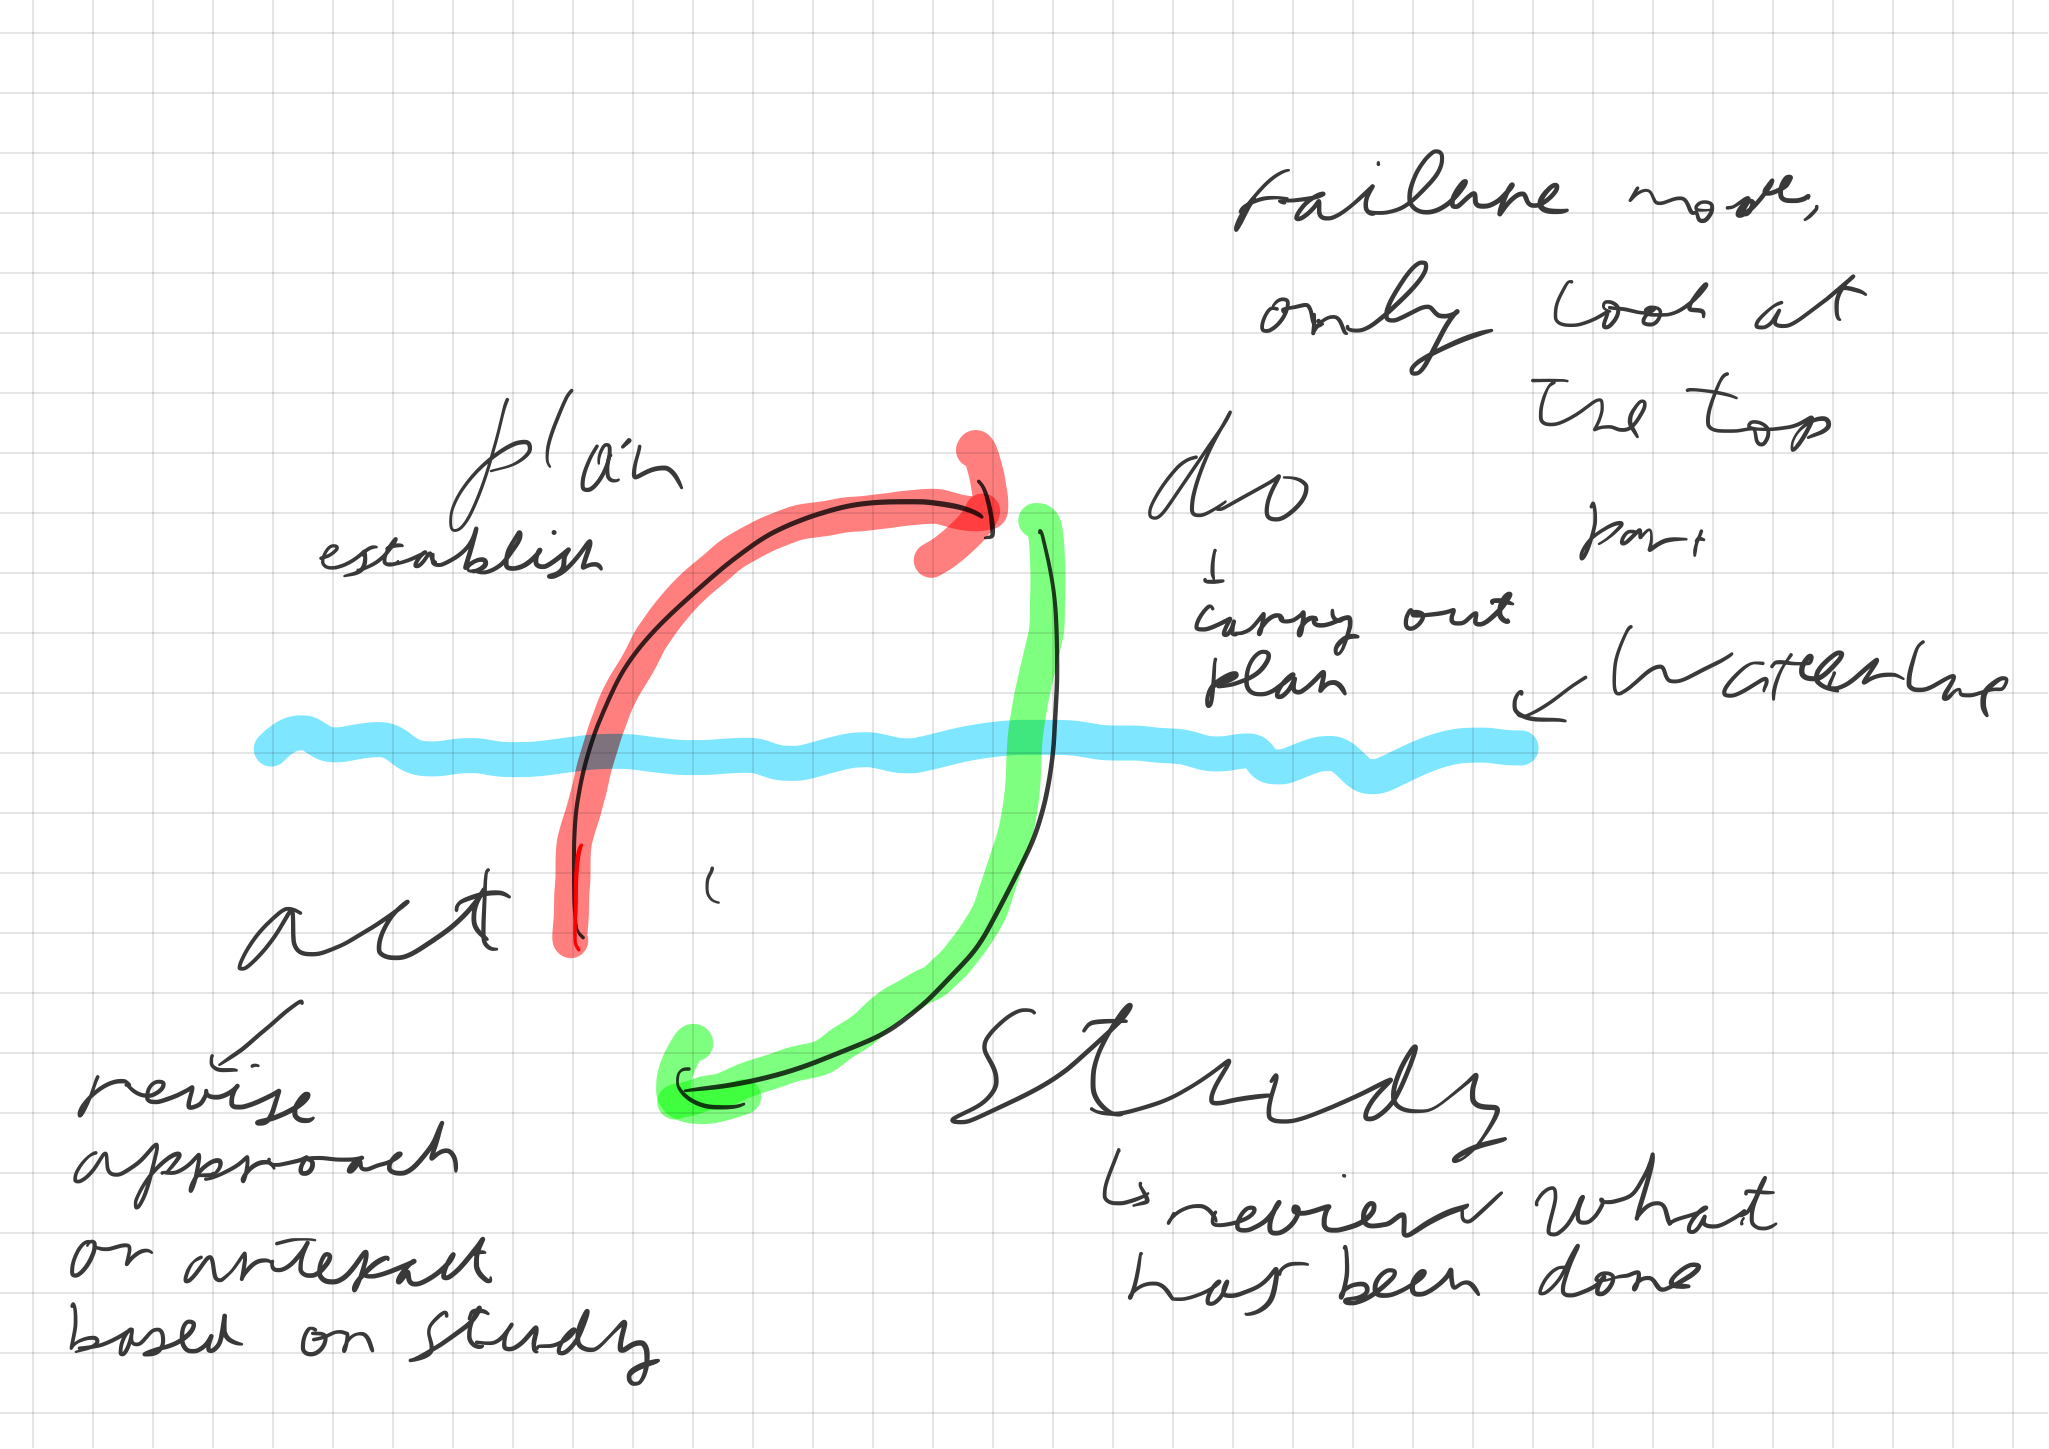 Failure mode,
only look at
the top
part
plan
establish
do
carry out
plan
Waterline
act
revise
approach
or artefact
based on study
Study
review what
has been done